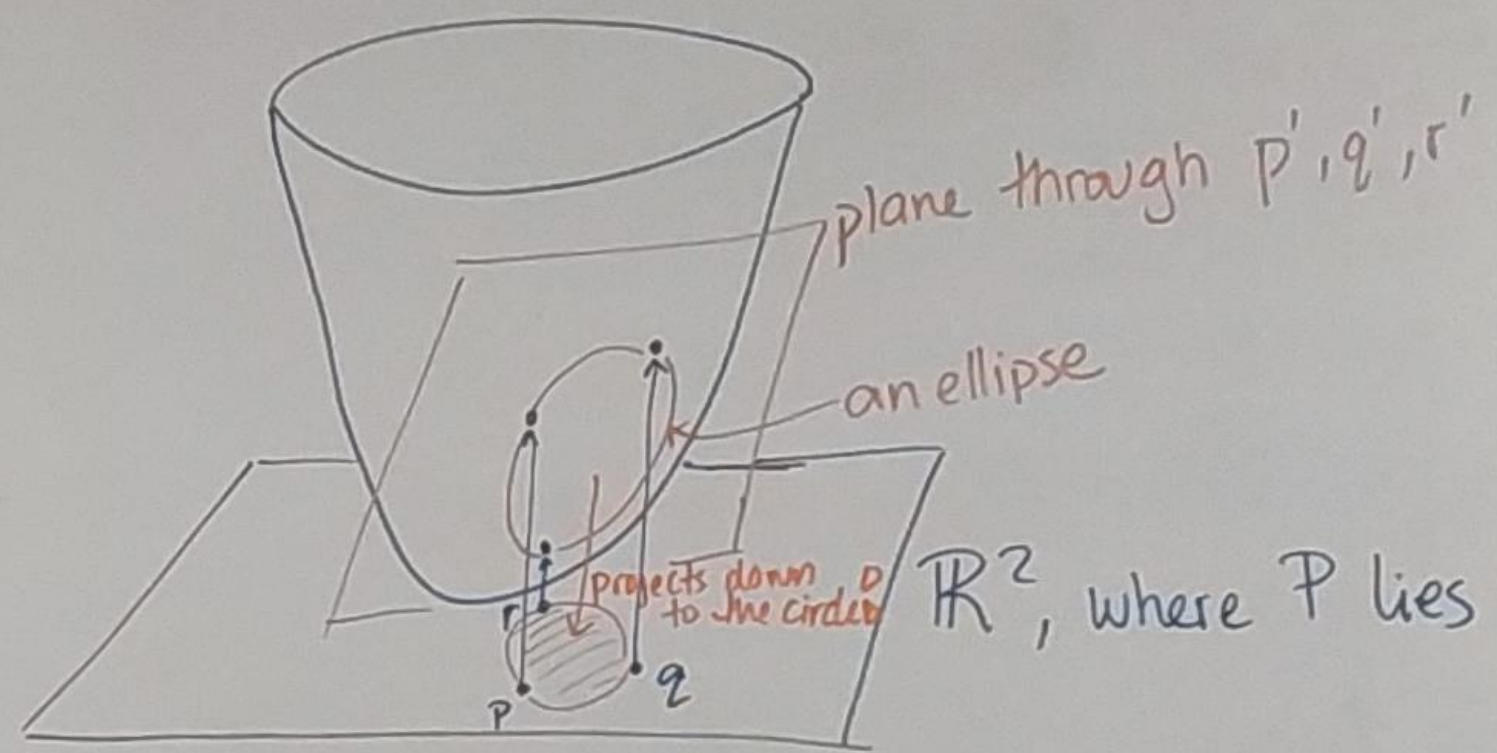 plane through p', q', r'
an ellipse
projects down
to the circle D
ℝ², where P lies
r
q
p